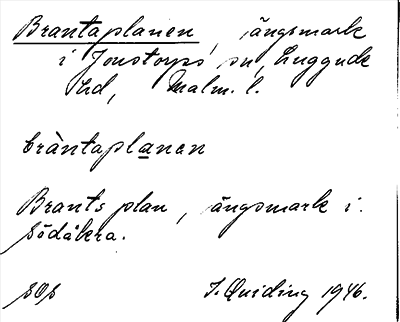 Brantaplanen, ängsmark
i Jonstorps sn, Luggude
hd, Malm. l.
bràntaplanen
Brants plan, ängsmark i
Södåkra.
sOs I. Quiding 1946.